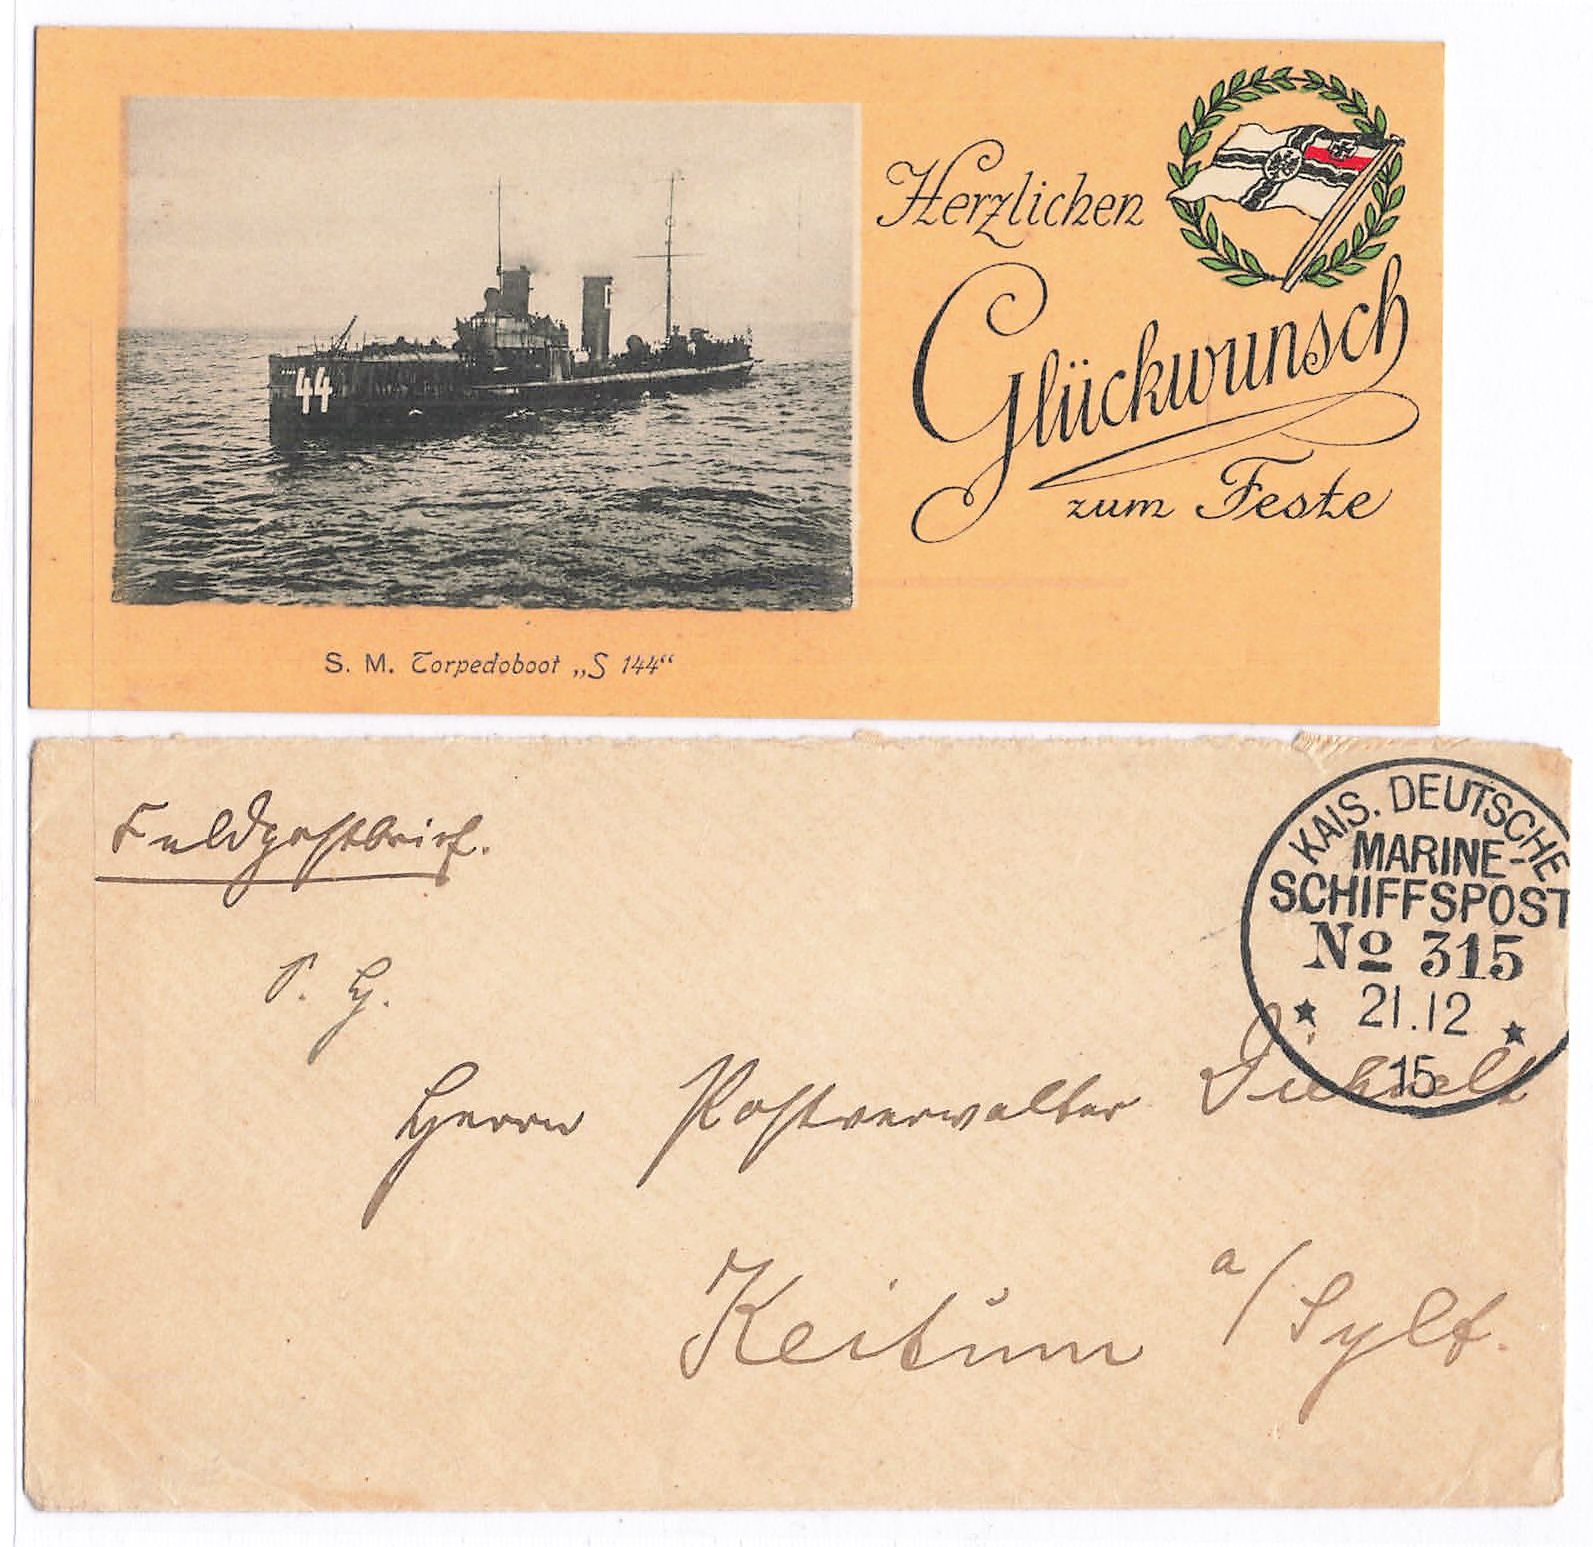 44
Herzlichen
Glückwunsch
zum Feste
S. M. Torpedoboot „S 144“
Feldpostbrief.
KAIS. DEUTSCHE
MARINE-
SCHIFFSPOST
No 315
21.12
15
S. H.
Herrn Postverwalter
Keitum a/Sylt.